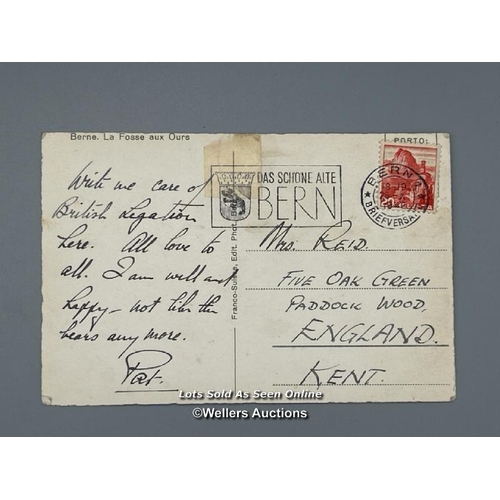 Berne. La Fosse aux Ours
Write me care of
British Legation
here. All love to
all. I am well and
happy - not like the
bears any more.
Pat.
Franco-Suisse, Edit. Phot.
DAS SCHÖNE ALTE
BERN
PORTO:
BERN
BRIEFVERSAND
Mrs. REID.
FIVE OAK GREEN
PADDOCK WOOD.
ENGLAND.
KENT.
Lots Sold As Seen Online
©Wellers Auctions